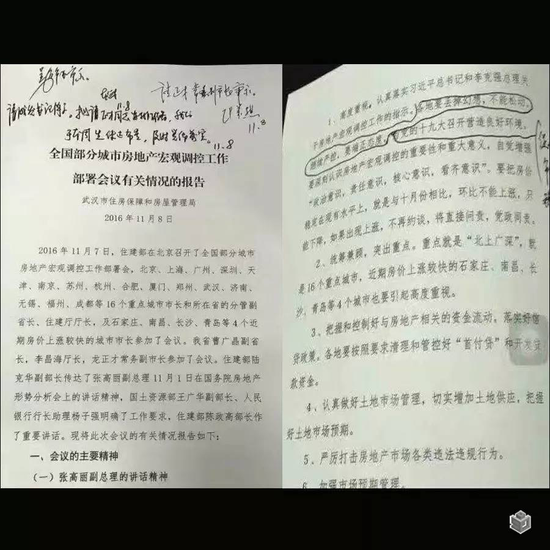 全国部分城市房地产宏观调控工作
部署会议有关情况的报告
武汉市住房保障和房屋管理局
2016 年 11 月 8 日
2016 年 11 月 7 日，住建部在北京召开了全国部分城市
房地产宏观调控工作部署会，北京、上海、广州、深圳、天
津、南京、苏州、杭州、合肥、厦门、郑州、武汉、济南、
无锡、福州、成都等 16 个重点城市市长和所在省的分管副
省长、住建厅厅长，及石家庄、南昌、长沙、青岛等 4 个近
期房价上涨较快的城市市长参加了会议。我省曹广晶副省
长，李昌海厅长，龙正才常务副市长参加了会议。住建部陆
克华副部长传达了张高丽副总理 11 月 1 日在国务院房地产
形势分析会上的讲话精神，国土资源部王广华副部长、人民
银行行长助理杨子强明确了工作要求，住建部陈政高部长作
了重要讲话。现将此次会议的有关情况报告如下：
一、会议的主要精神
（一）张高丽副总理的讲话精神
1、高度重视。认真落实习近平总书记和李克强总理关
于房地产宏观调控工作的指示，各地要丢掉幻想，不能松动，
继续严控，
党的十九大召开营造良好环境。
要深刻认识房地产宏观调控的重要性和重大意义，自觉增强
"政治意识，责任意识，核心意识，看齐意识"。要把房价
稳控在现有水平上，就是与十月份相比，环比不能上涨，只
能下降，如果出现上涨，不再约谈，将直接问责，党政同责。
2、统筹兼顾，突出重点。重点就是"北上广深"，就
是 16 个重点城市，近期房价上涨较快的石家庄、南昌、长
沙、青岛等 4 个城市也要引起高度重视。
3、把握和控制好与房地产相关的资金流动。落实好信
贷政策。各地要按照要求清理和管控好"首付贷"和开发贷
款资金。
4、认真做好土地市场管理，切实增加土地供应，把握
好土地市场预期。
5、严厉打击房地产市场各类违法违规行为。
6、加强市场预期管理。